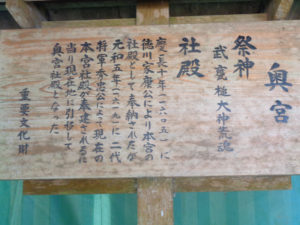 奥宮
祭神
武甕槌大神荒魂
社殿
慶長十年(一六〇五)に
徳川家康公により本宮の
社殿として奉納されたが
元和五年(一六一九)に二代
将軍秀忠公により現在の
本宮社殿が奉建されるに
当り現在地に引移して
奥宮社殿となった。
重要文化財